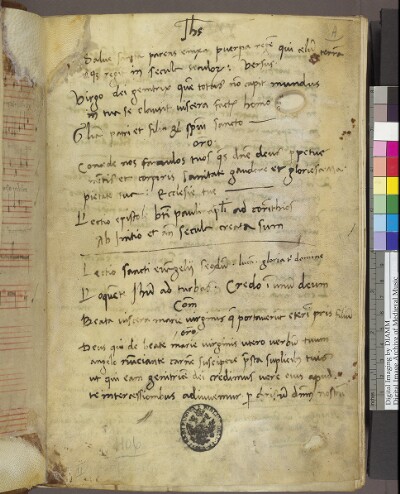 Jhs
Salve sancta parens enixa puerpa regē qui celū terram
regit in secula seculor. Versus
Virgo dei genitrix que totus nō capit mundus
in tua se clausit viscera factus homo
Gloria patri et filio et spiritui sancto
oro
Concede nos famulos tuos qs dne deus ppetue
mentis et corporis sanitate gaudere et gloriosa
Lectio epistole bti pauli apli ad corinthios
Ab initio et an secula creata sum
Lectio sancti evāgelij secūdū lucā gloria t domine
Loquente Jhu ad turbas Credo ī unū deum
Com
Beata viscera marie virginis q portaverūt eterni pris filiū
oro
Deus qui de beate marie virginis utero verbū tuum
angelo nunciante carnē suscipere supplicib tuis
ut qui eam genitricē dei credimus vere eius apud
te intercessionibus adiuvemur p dnm
Digital Imaging by DIAMM
Digital Image Archive of Medieval Music